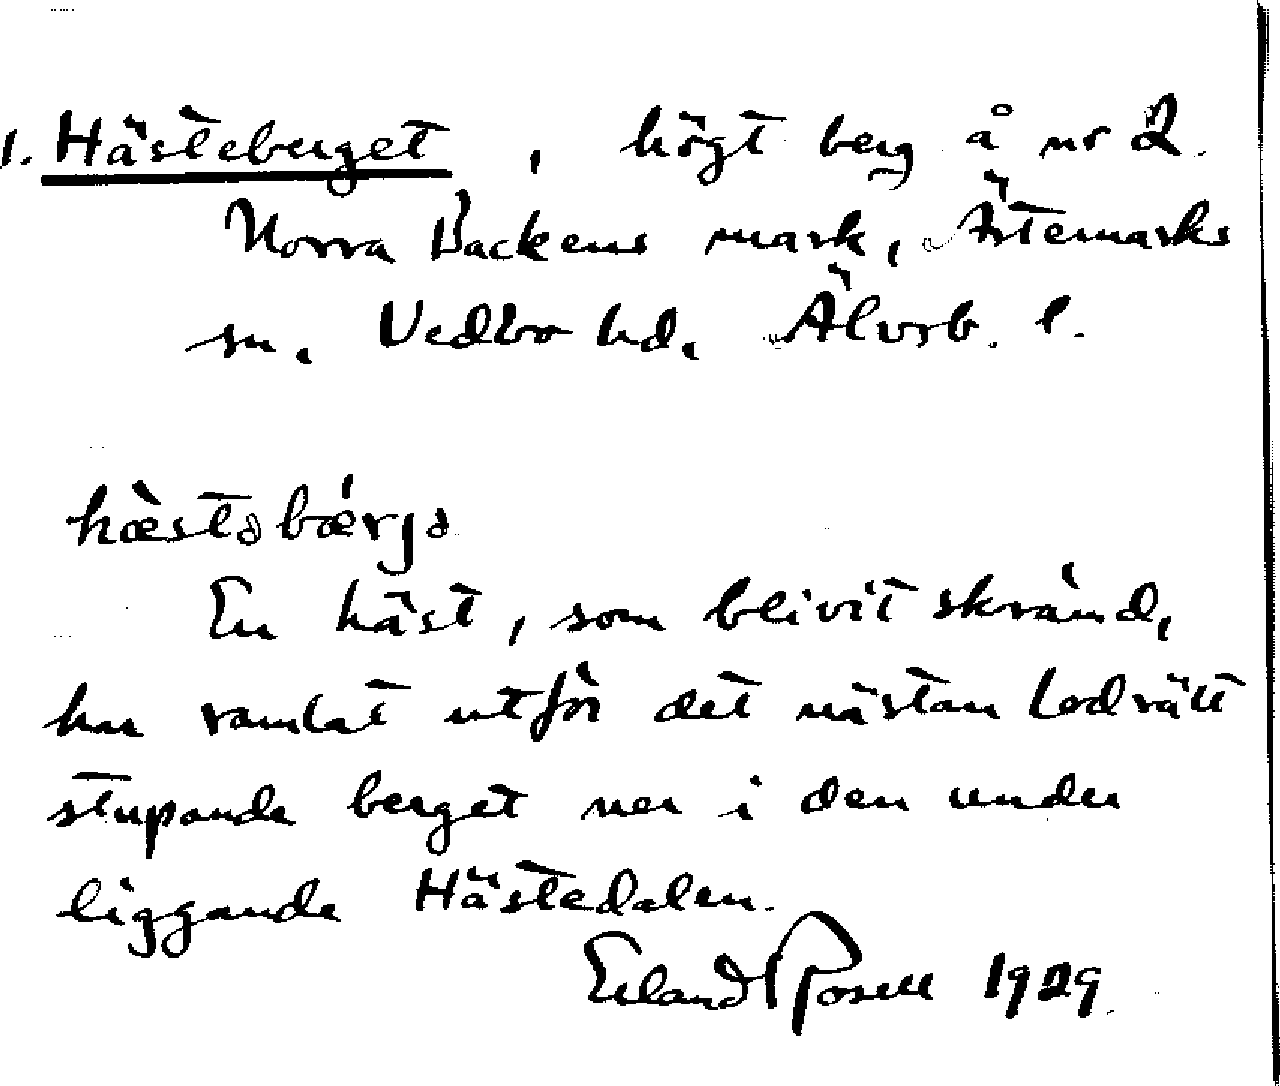 1. Hästeberget, högt berg å nr 2.
Norra Backens mark, Ärtemarks
sn. Vedbo hd. Älvsb. l.
hæ̀stəbǽrjə
En häst, som blivit skrämd,
har ramlat utför det nästan lodrätt
stupande berget ner i den under
liggande Hästedalen.
Erland Rosell 1929